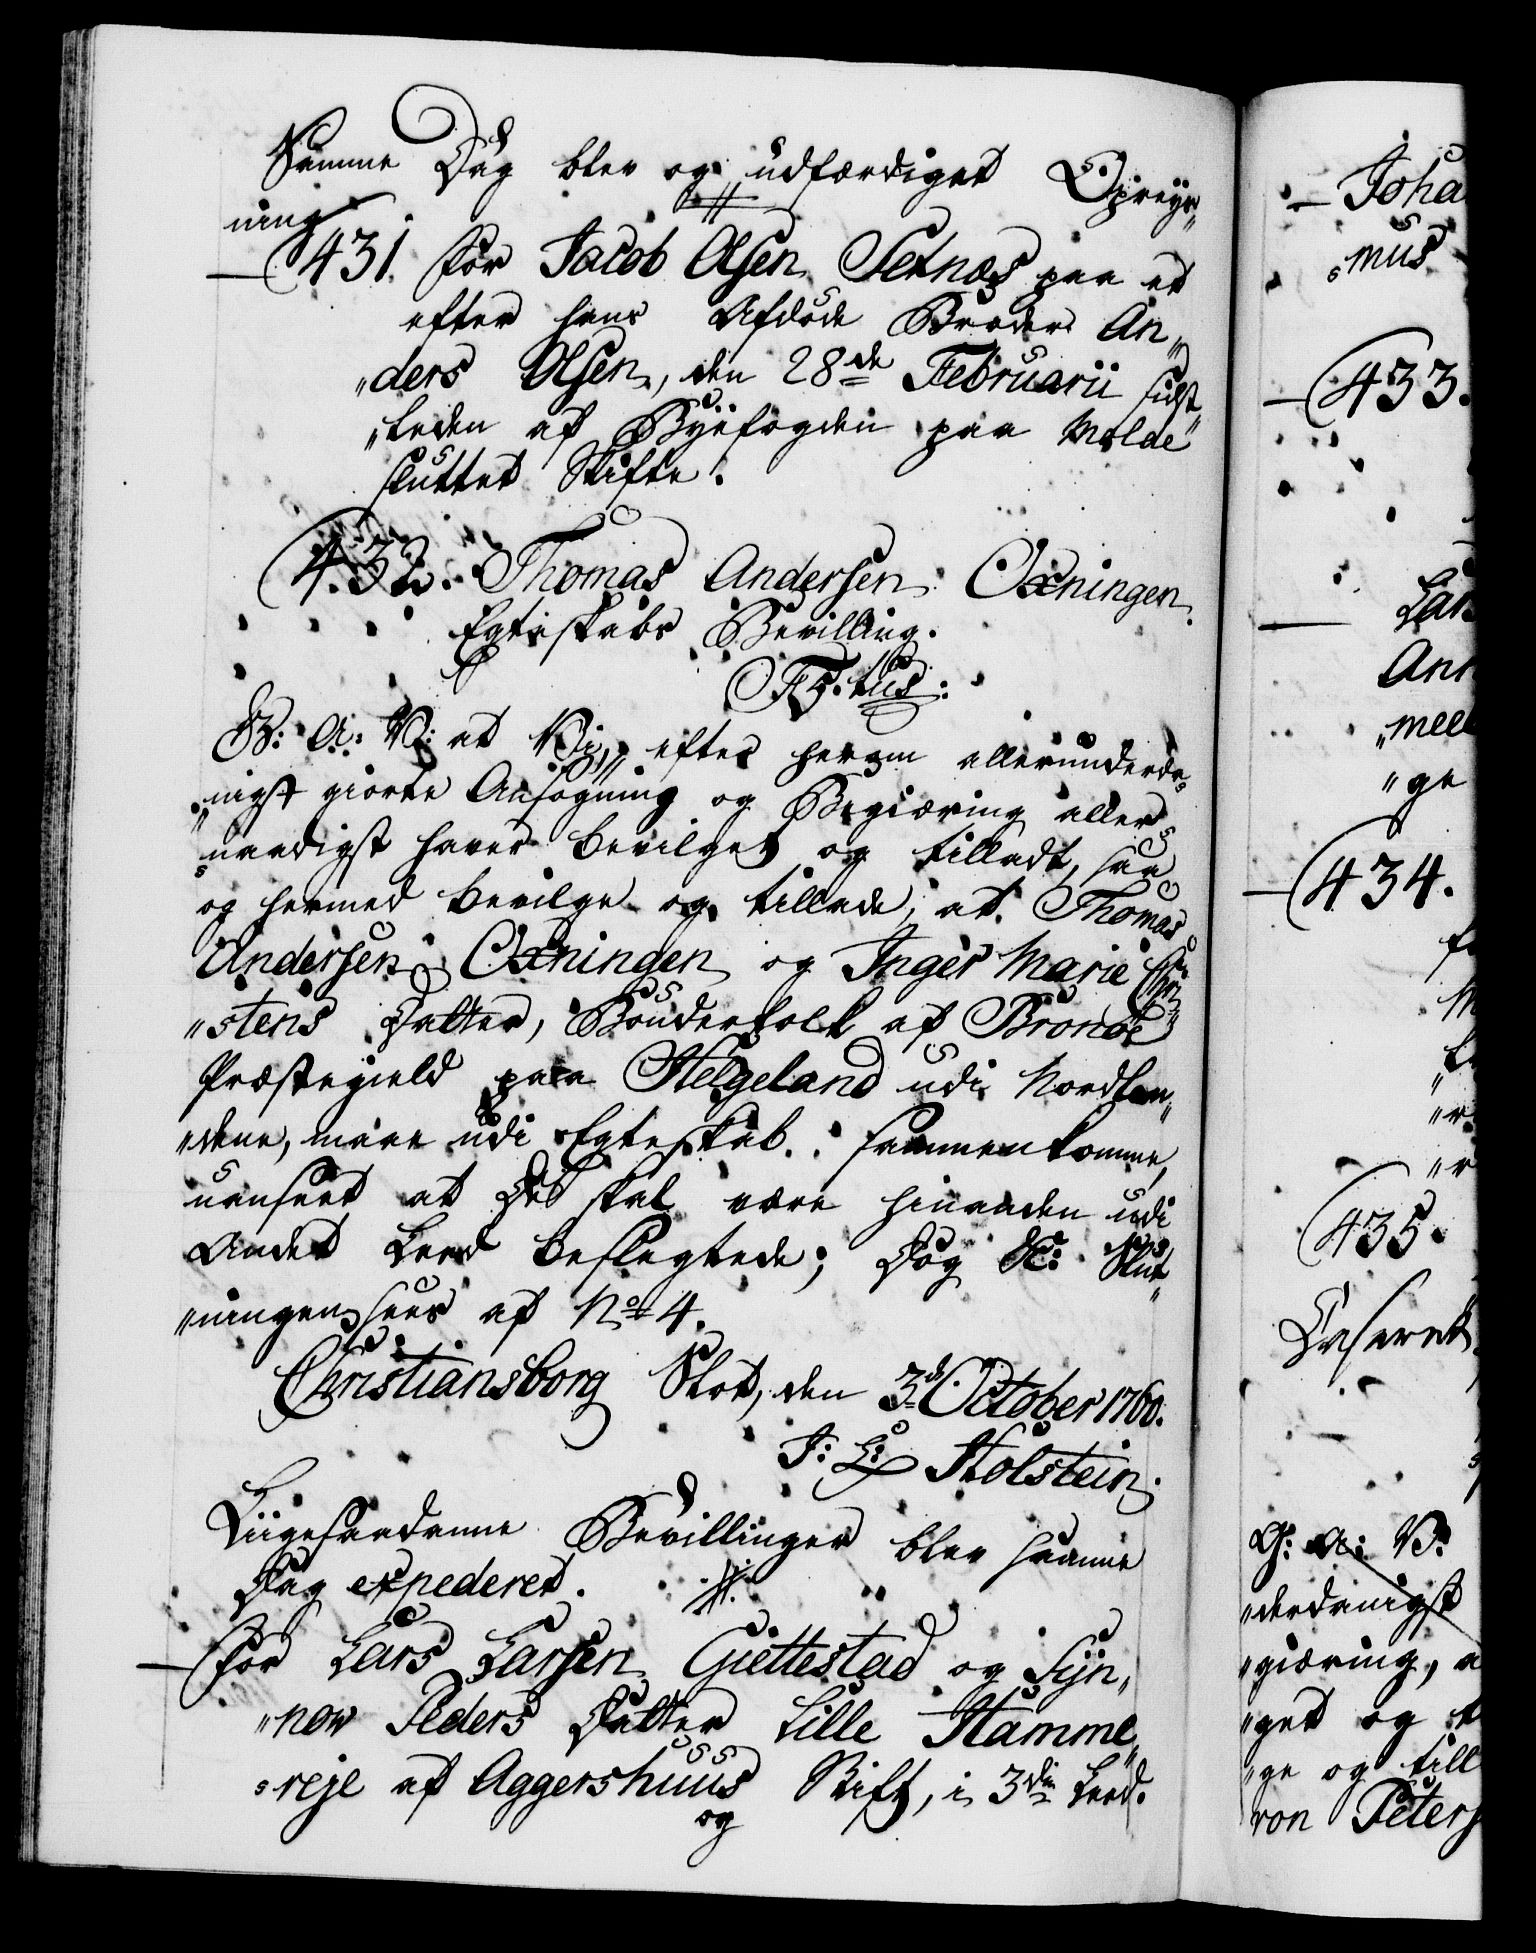 Samme Dag blev og udfærdiget Opreys„
ning
431. for Jacob Olsen Setnæs paa et
efter hans Afdøde Broder An„
„ders Olsen, den 28de Februarii sidst„
„leden af Byefogden paa Molde
sluttet Skifte.
432. Thomas Andersen Oxningen
Egteskabs Bevilling.
F 5. tus:
G: A: V: at Vi, efter herom allerunderda„
„nigst giorte Ansøgning og Begiæring aller„
„naadigst haver bevilget og tilladt, saa
og hermed bevilge og tillade, at Thomas
Andersen Oxningen og Inger Marie Chri„
„stens Datter, Bønderfolk af Brønøe
Præstegield paa Helgeland udi Nordlan„
„dene, maae udi Egteskab sammenkomme,
uanseet at De skal være hinanden udi
Andet Leed beslegtede; Dog &c: Slut„
„ningen sees af No 4.
Christiansborg Slot, den 3d October 1760.
J: L: Holstein.
Liigesaadanne Bevillinger blev samme
Dag expederet.
for Lars Larsen Giettestad og Syn„
„now Peders Datter Lille Hamme„
„reje af Aggershuus Stift, i 3die Leed.
og
Joha
„mus
433.
Lars
Ann
„mell
„ge
434.
435.
G: A: V:
„derdanigst
„giæring, a
„get og t
„ge og till
ron Peters